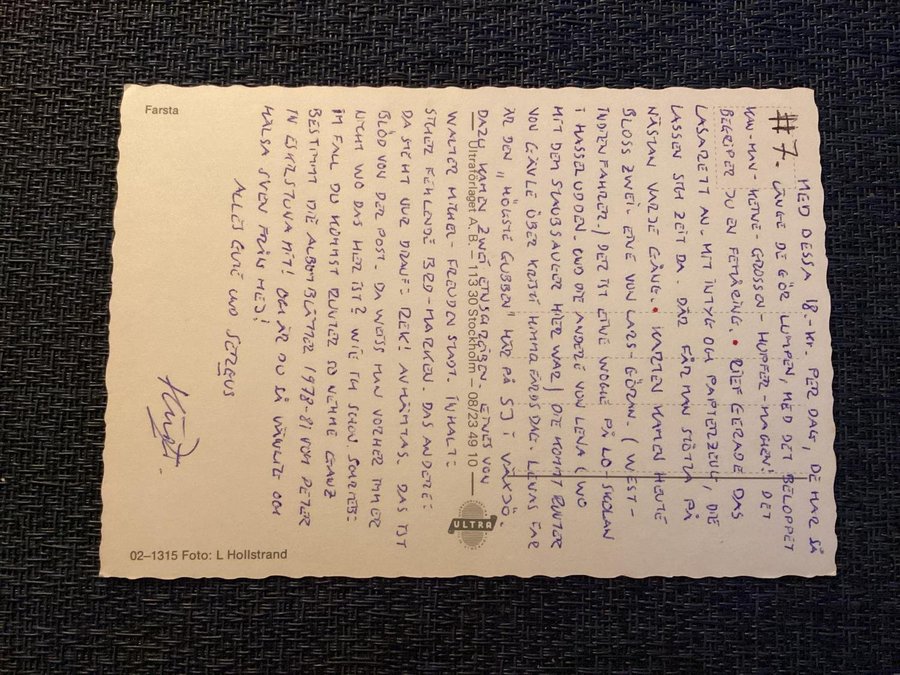 Farsta
Ultraförlaget A.B. – 113 30 Stockholm – 08/23 49 10
ULTRA
02–1315 Foto: L Hollstrand
MED DESSA 18.-KR. PER DAG, DE HAR SÅ
#7. LÄNGE DE GÖR LUMPEN, MED DET BELOPPET
KAN-MAN-KEINE-GROSSEN-HÜPFER-MACHEN! DET
BEGRIPER JU EN FEMÅRING. • RIEF GERADE DAS
LASARETT AN. MIT INTYG OCH PAPIERZEUG, DIE
LASSEN SICH ZEIT DA. DÄR FÅR MAN STÖTA PÅ
NÄSTAN VARJE GÅNG. • KARTEN KAMEN HEUTE
BLOSS ZWEI. EINE VON LARS-GÖRAN. (WEST-
INDIENFAHRER.) DER IST EINE WOCHE PÅ LO-SKOLAN
I HASSELUDDEN. UND DIE ANDERE VON LENA (WO
MIT DEM STAUBSAUGER HIER WAR) DIE KOMMT RUNTER
VON GÄVLE ÜBER KRISTI HIMMELFÄRDSDAG. LENAS FAR
ÄR DEN „HÖGSTE GUBBEN" HÄR PÅ SJ I VÄXJÖ.
DAZU KAMEN ZWEI EINSCHREIBEN. EINES VON
WALTER MICHEL-FREUDENSTADT. INHALT:
STILER FEHLENDE BRD-MARKEN. DAS ANDERE:
DA STEHT NUR DRAUF: REK! AVHÄMTAS. DAS IST
BLÖD VON DER POST. DA WEISS MAN VORHER IMMER
NICHT WO DAS HER IST? WIE ICH SCHON SCHRIEB:
IM FALL DU KOMMST RUNTER SO NEHME GANZ
BESTIMMT DIE ALBUMBLÄTTER 1978-81 VOM PETER
IN ESKILSTUNA MIT! OCH ÄR DU SÅ VÄNLIG OCH
HÄLSA SVEN FRÅN MEJ!
ALLES GUTE UND SERVUS